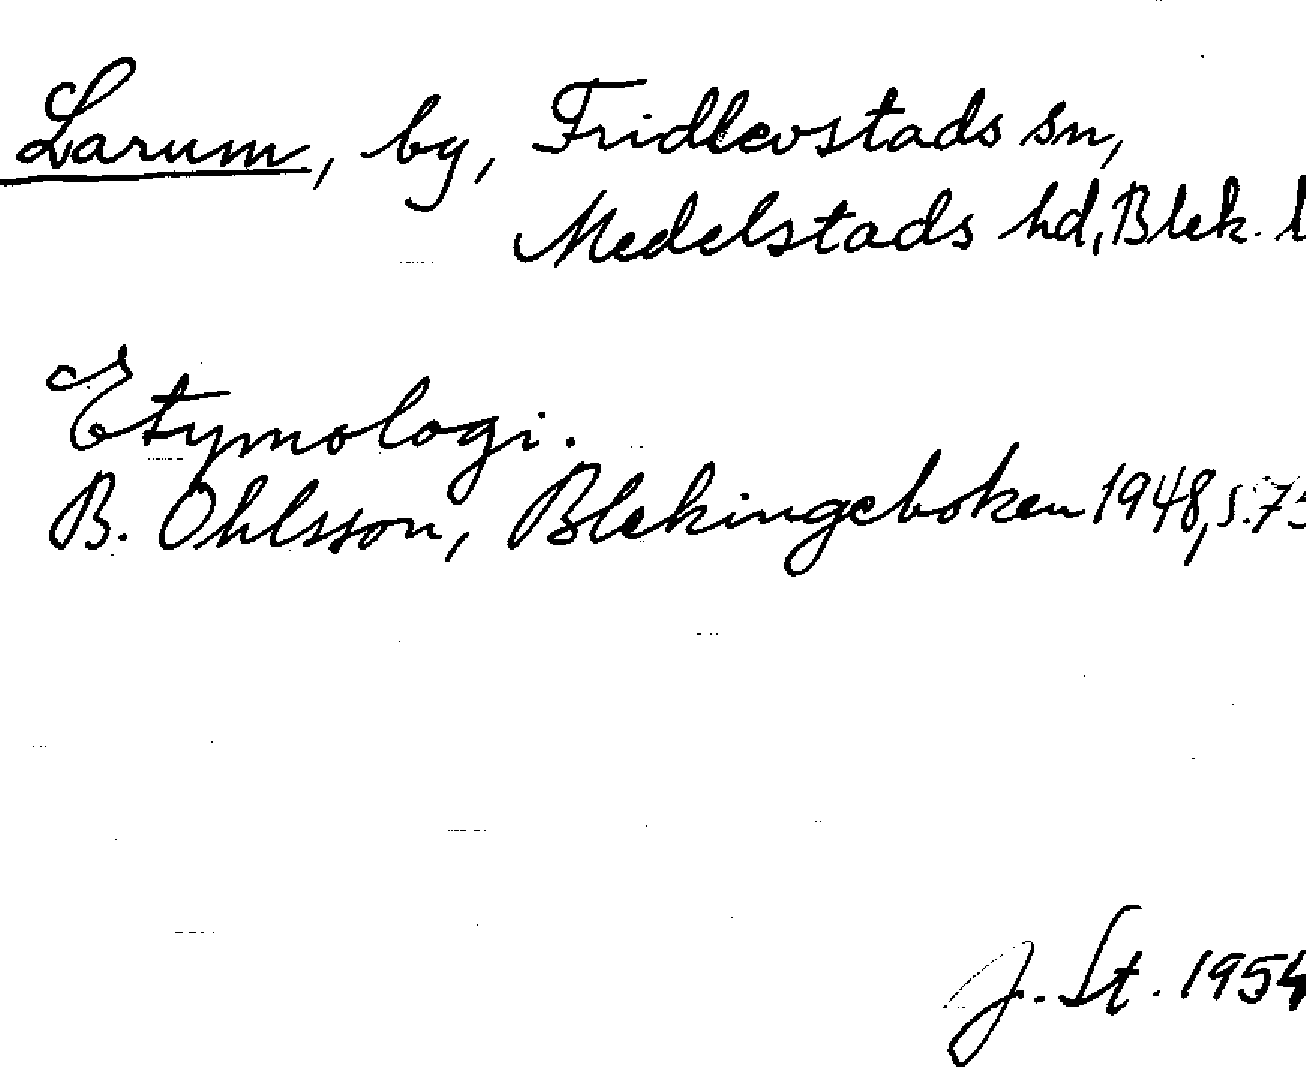 Larum, by, Fridlevstads sn,
Medelstads hd, Blek. l
Etymologi.
B. Ohlsson, Blekingeboken 1948, s. 75
J. St. 1954